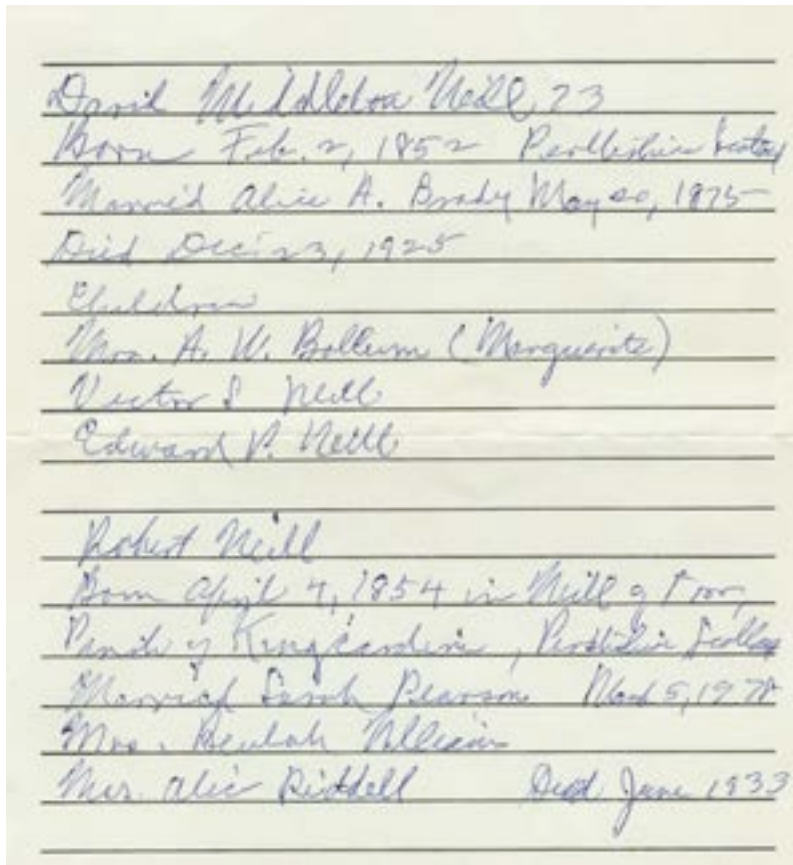 David Middleton Neill, 73
Born Feb. 2, 1852 Perthshire Scotland
Married Alice A. Brady May 20, 1875
Died Dec. 23, 1925
Children
Mrs. A. W. Bollum (Marguerite)
Victor S Neill
Edward P. Neill
Robert Neill
Born April 4, 1854 in Mill of
Parish of Kingcardine, Perthshire Scotland
Married Sarah Pearson 5, 1978
Mrs. Beulah
Mrs. Alice Riddell Died June 1933